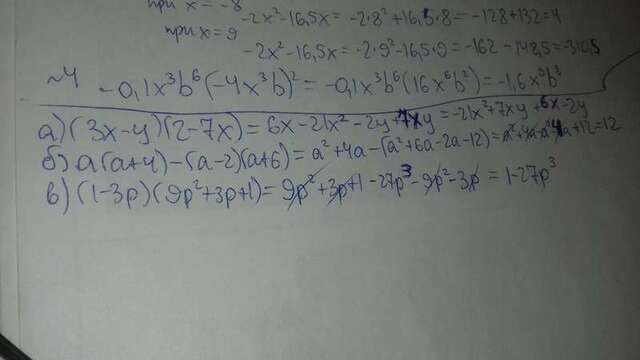 при x = -8 -2x²-16,5x = -2·8²+16,5·8 = -128+132=4
при x = 9
-2x²-16,5x = -2·9²-16,5·9 = -162-142,5=-310,5
~4 -0,1x³b⁶(-4x³b)² = -0,1x³b⁶(16x⁶b²) = -1,6x⁹b⁸
а) (3x-y)(2-7x) = 6x-21x²-2y+7xy = -21x²+7xy+6x-2y
б) a(a+4)-(a-2)(a+6) = a²+4a-(a²+6a-2a-12) = a²+4a-a²-4a+12=12
в) (1-3p)(9p²+3p+1) = 9p²+3p+1-27p³-9p²-3p = 1-27p³